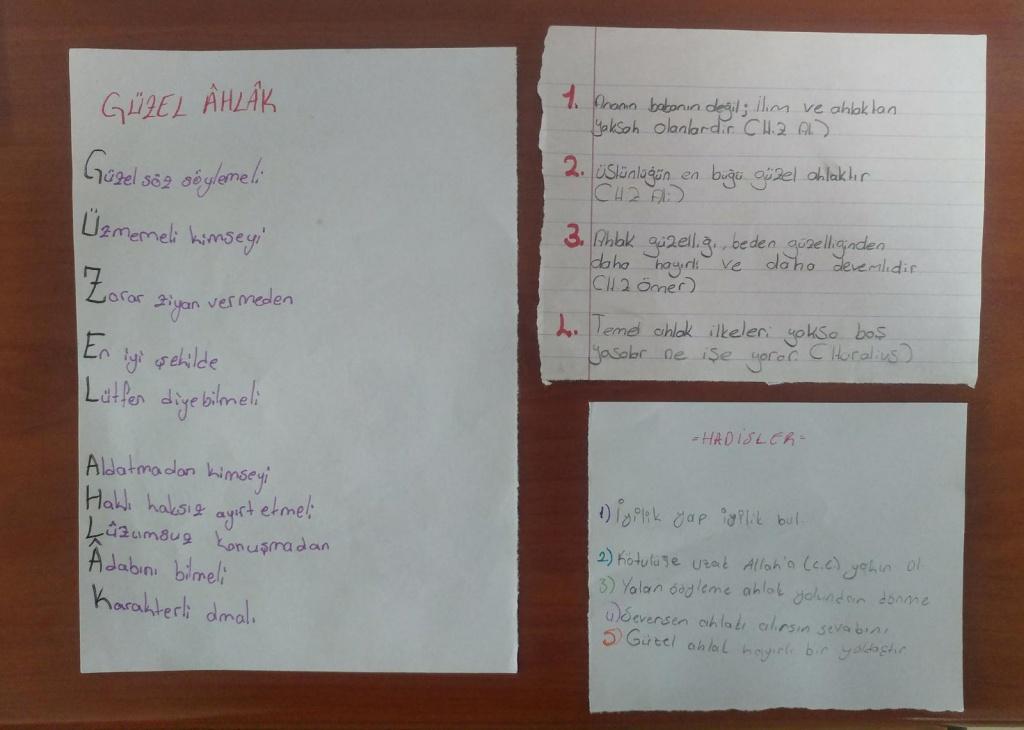 GÜZEL ÂHLÂK
Güzel söz söylemeli
Üzmemeli kimseyi
Zarar ziyan vermeden
En iyi şekilde
Lütfen diyebilmeli
Aldatmadan kimseyi
Haklı haksız ayırt etmeli
Lûzumsuz konuşmadan
Âdabını bilmeli
Karakterli olmalı
1. Ananın babanın değil; ilim ve ahlaktan
yoksan olanlardır (H.z Ali)
2. üstünlüğün en büğü güzel ahlaktır
(H.z Ali)
3. Ahlak güzelliği, beden güzelliğinden
daha hayırlı ve daha devamlıdır
(H.z ömer)
4. Temel ahlak ilkeleri yoksa boş
yasalar ne işe yarar (Horatius)
=HADİSLER=
1) İyilik yap iyilik bul.
2) Kötülüğe uzak Allah'a (c.c) yakın ol
3) Yalan söyleme ahlak yolundan dönme
4) Seversen ahlakı alırsın sevabını
5) Güzel ahlak hayırlı bir yoldaştır